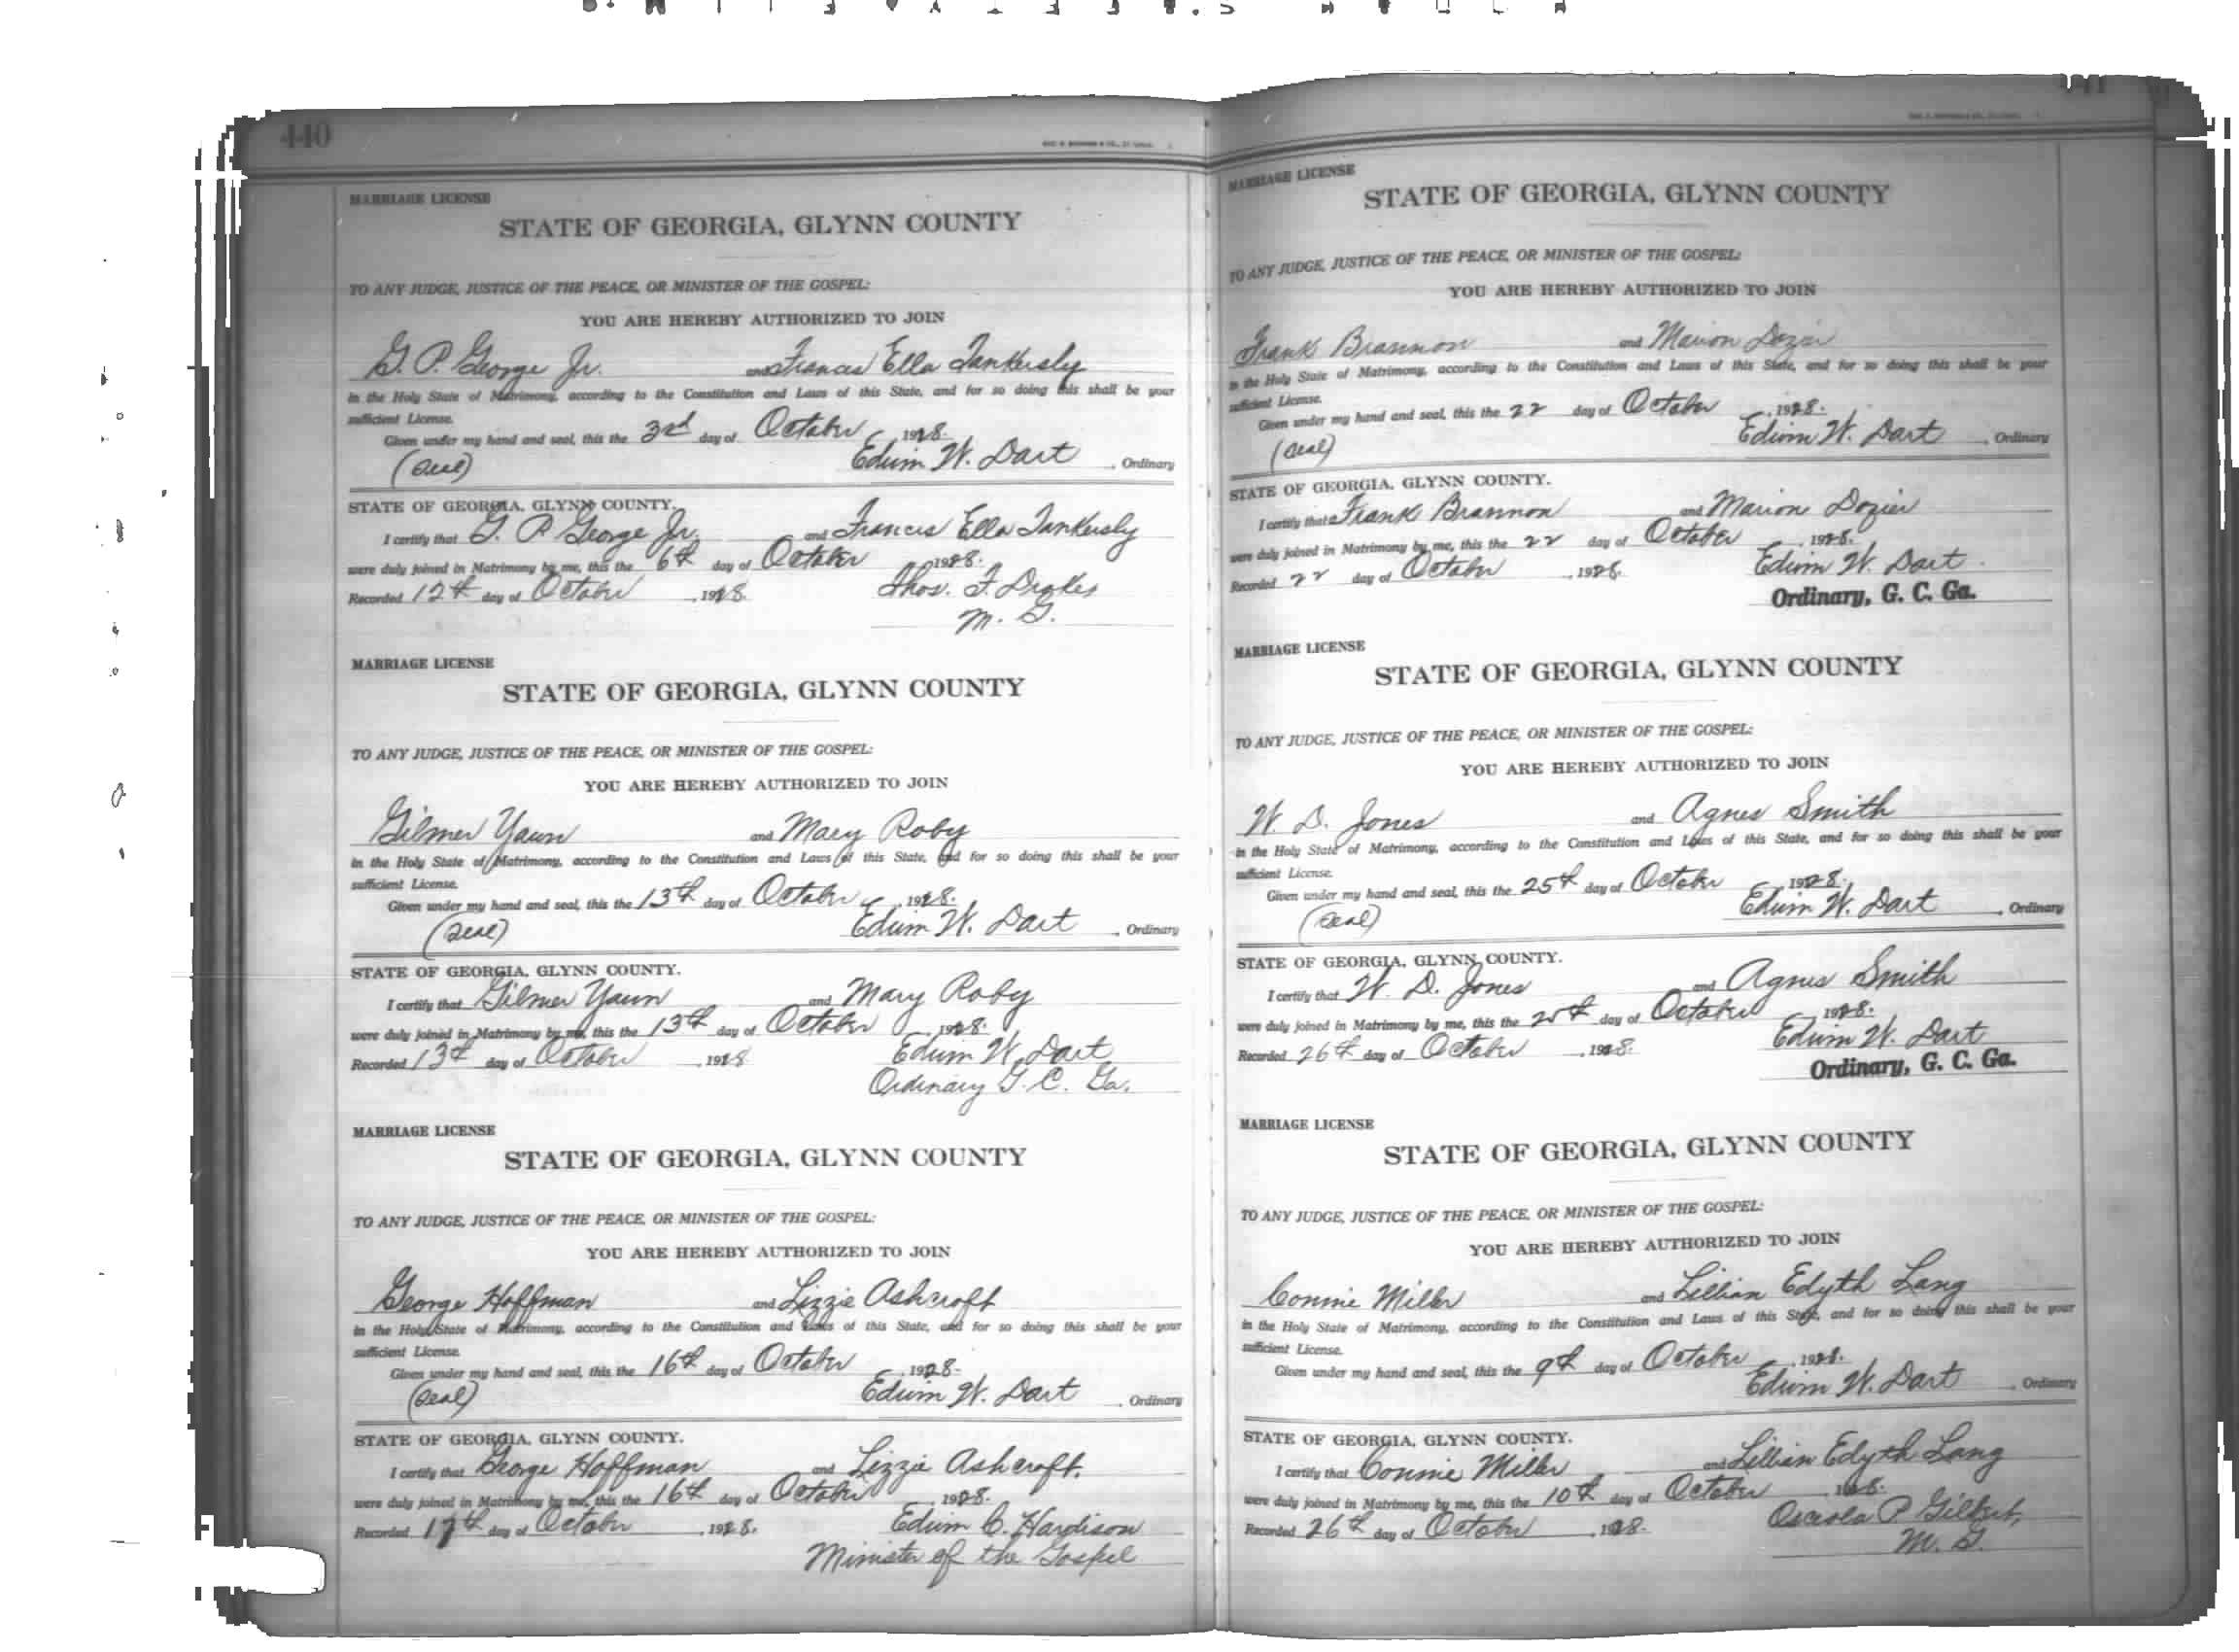 440
MARRIAGE LICENSE
STATE OF GEORGIA, GLYNN COUNTY
TO ANY JUDGE, JUSTICE OF THE PEACE, OR MINISTER OF THE GOSPEL:
YOU ARE HEREBY AUTHORIZED TO JOIN
G. P. George Jr. and Frances Ella Tankersly
in the Holy State of Matrimony, according to the Constitution and Laws of this State, and for so doing this shall be your
sufficient License.
Given under my hand and seal, this the 3rd day of October, 1928.
(Seal) Edwin W. Dart, Ordinary
STATE OF GEORGIA, GLYNN COUNTY.
I certify that G. P. George Jr. and Frances Ella Tankersly
were duly joined in Matrimony by me, this the 6th day of October, 1928.
Recorded 12th day of October, 1928. Thos. F.
M. G.
MARRIAGE LICENSE
STATE OF GEORGIA, GLYNN COUNTY
TO ANY JUDGE, JUSTICE OF THE PEACE, OR MINISTER OF THE GOSPEL:
YOU ARE HEREBY AUTHORIZED TO JOIN
Gilmer Yawn and Mary Roby
in the Holy State of Matrimony, according to the Constitution and Laws of this State, and for so doing this shall be your
sufficient License.
Given under my hand and seal, this the 13th day of October, 1928.
(Seal) Edwin W. Dart, Ordinary
STATE OF GEORGIA, GLYNN COUNTY.
I certify that Gilmer Yawn and Mary Roby
were duly joined in Matrimony by me, this the 13th day of October, 1928.
Recorded 13th day of October, 1928 Edwin W. Dart
Ordinary G. C. Ga.
MARRIAGE LICENSE
STATE OF GEORGIA, GLYNN COUNTY
TO ANY JUDGE, JUSTICE OF THE PEACE, OR MINISTER OF THE GOSPEL:
YOU ARE HEREBY AUTHORIZED TO JOIN
George Hoffman and Lizzie Ashcroft
in the Holy State of Matrimony, according to the Constitution and Laws of this State, and for so doing this shall be your
sufficient License.
Given under my hand and seal, this the 16th day of October, 1928.
(Seal) Edwin W. Dart, Ordinary
STATE OF GEORGIA, GLYNN COUNTY.
I certify that George Hoffman and Lizzie Ashcroft.
were duly joined in Matrimony by me, this the 16th day of October, 1928.
Recorded 17th day of October, 1928. Edwin C. Hardison
Minister of the Gospel
MARRIAGE LICENSE
STATE OF GEORGIA, GLYNN COUNTY
TO ANY JUDGE, JUSTICE OF THE PEACE, OR MINISTER OF THE GOSPEL:
YOU ARE HEREBY AUTHORIZED TO JOIN
Frank Brannon and Marion Dozier
in the Holy State of Matrimony, according to the Constitution and Laws of this State, and for so doing this shall be your
sufficient License.
Given under my hand and seal, this the 22 day of October, 1928.
(Seal) Edwin W. Dart, Ordinary
STATE OF GEORGIA, GLYNN COUNTY.
I certify that Frank Brannon and Marion Dozier
were duly joined in Matrimony by me, this the 22 day of October, 1928.
Recorded 22 day of October, 1928. Edwin W. Dart
Ordinary, G. C. Ga.
MARRIAGE LICENSE
STATE OF GEORGIA, GLYNN COUNTY
TO ANY JUDGE, JUSTICE OF THE PEACE, OR MINISTER OF THE GOSPEL:
YOU ARE HEREBY AUTHORIZED TO JOIN
W. D. Jones and Agnes Smith
in the Holy State of Matrimony, according to the Constitution and Laws of this State, and for so doing this shall be your
sufficient License.
Given under my hand and seal, this the 25th day of October, 1928.
(Seal) Edwin W. Dart, Ordinary
STATE OF GEORGIA, GLYNN COUNTY.
I certify that W. D. Jones and Agnes Smith
were duly joined in Matrimony by me, this the 25th day of October, 1928.
Recorded 26th day of October, 1928. Edwin W. Dart
Ordinary, G. C. Ga.
MARRIAGE LICENSE
STATE OF GEORGIA, GLYNN COUNTY
TO ANY JUDGE, JUSTICE OF THE PEACE, OR MINISTER OF THE GOSPEL:
YOU ARE HEREBY AUTHORIZED TO JOIN
Connie Miller and Lillian Edyth Lang
in the Holy State of Matrimony, according to the Constitution and Laws of this State, and for so doing this shall be your
sufficient License.
Given under my hand and seal, this the 9th day of October, 1928.
Edwin W. Dart, Ordinary
STATE OF GEORGIA, GLYNN COUNTY.
I certify that Connie Miller and Lillian Edyth Lang
were duly joined in Matrimony by me, this the 10th day of October, 1928.
Recorded 26th day of October, 1928. Osceola P Gilbert,
M. G.